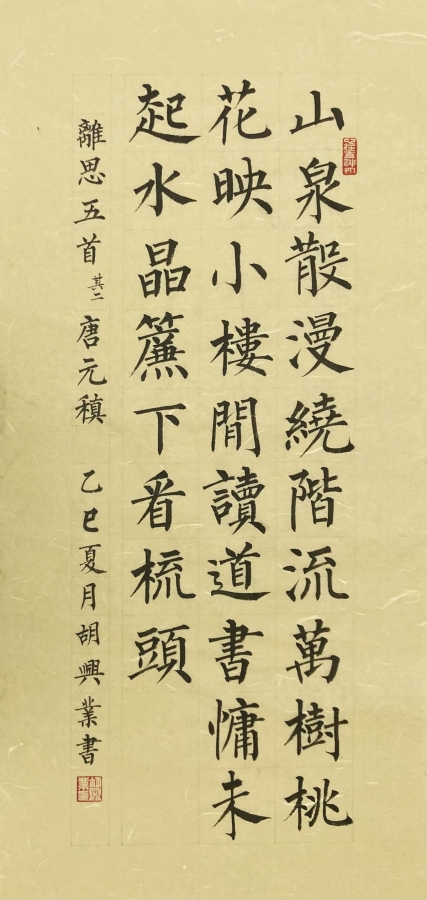 山泉散漫繞階流萬樹桃
花映小樓閒讀道書慵未
起水晶簾下看梳頭
離思五首 其二 唐元稹 乙巳夏月胡興業書